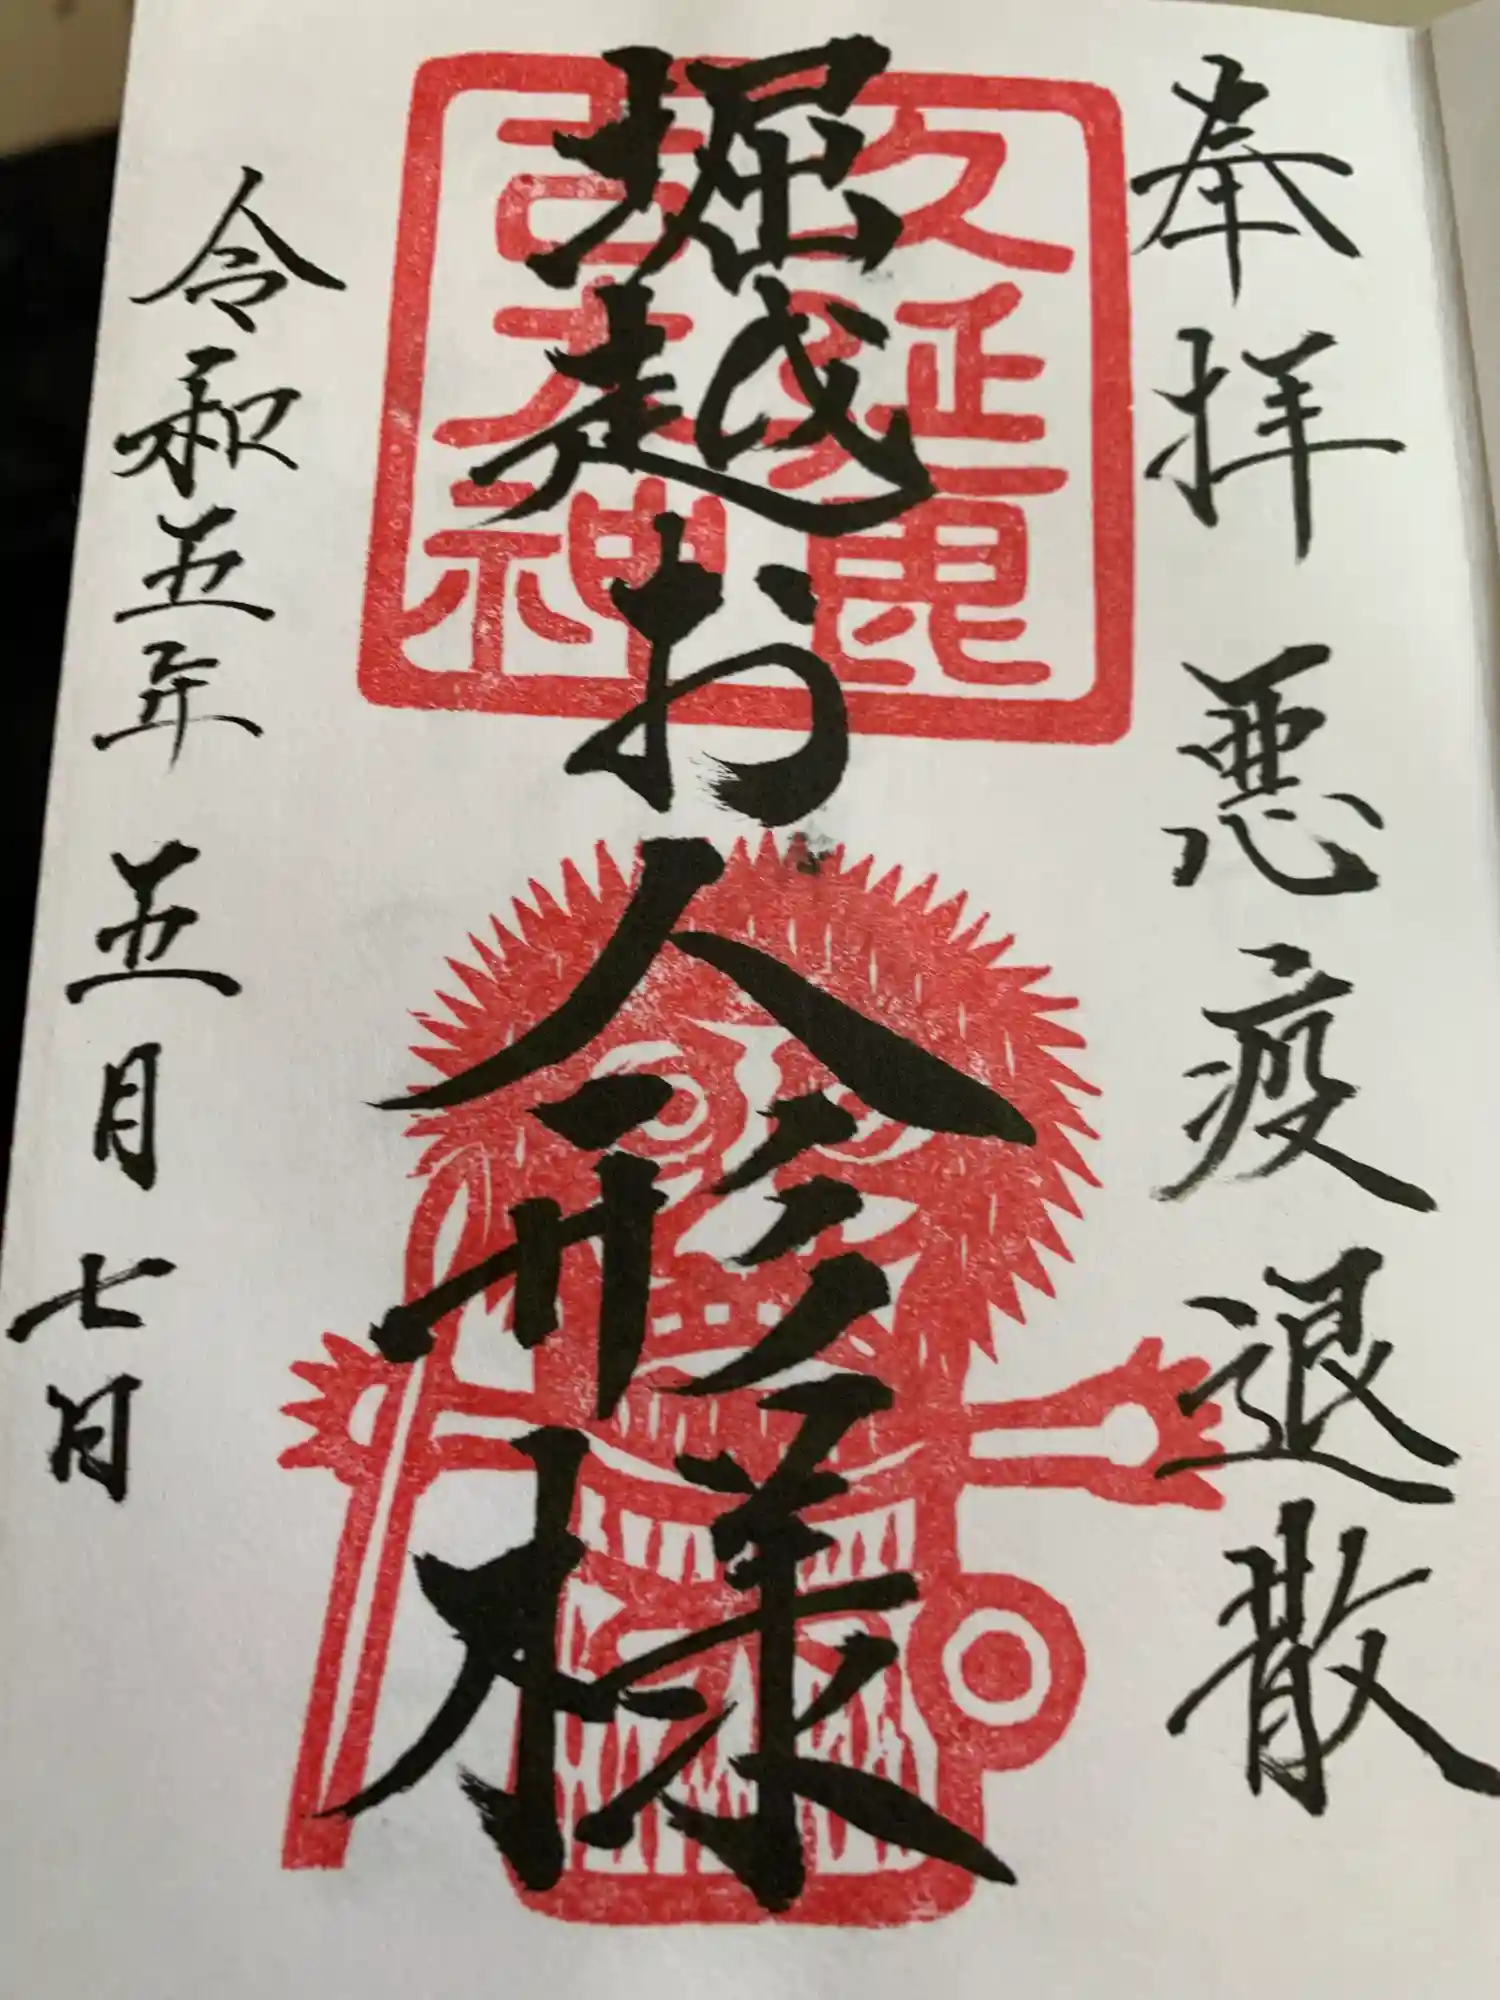 奉拝 悪疫退散
堀越お人形様
久延毘
古大神
令和五年 五月七日